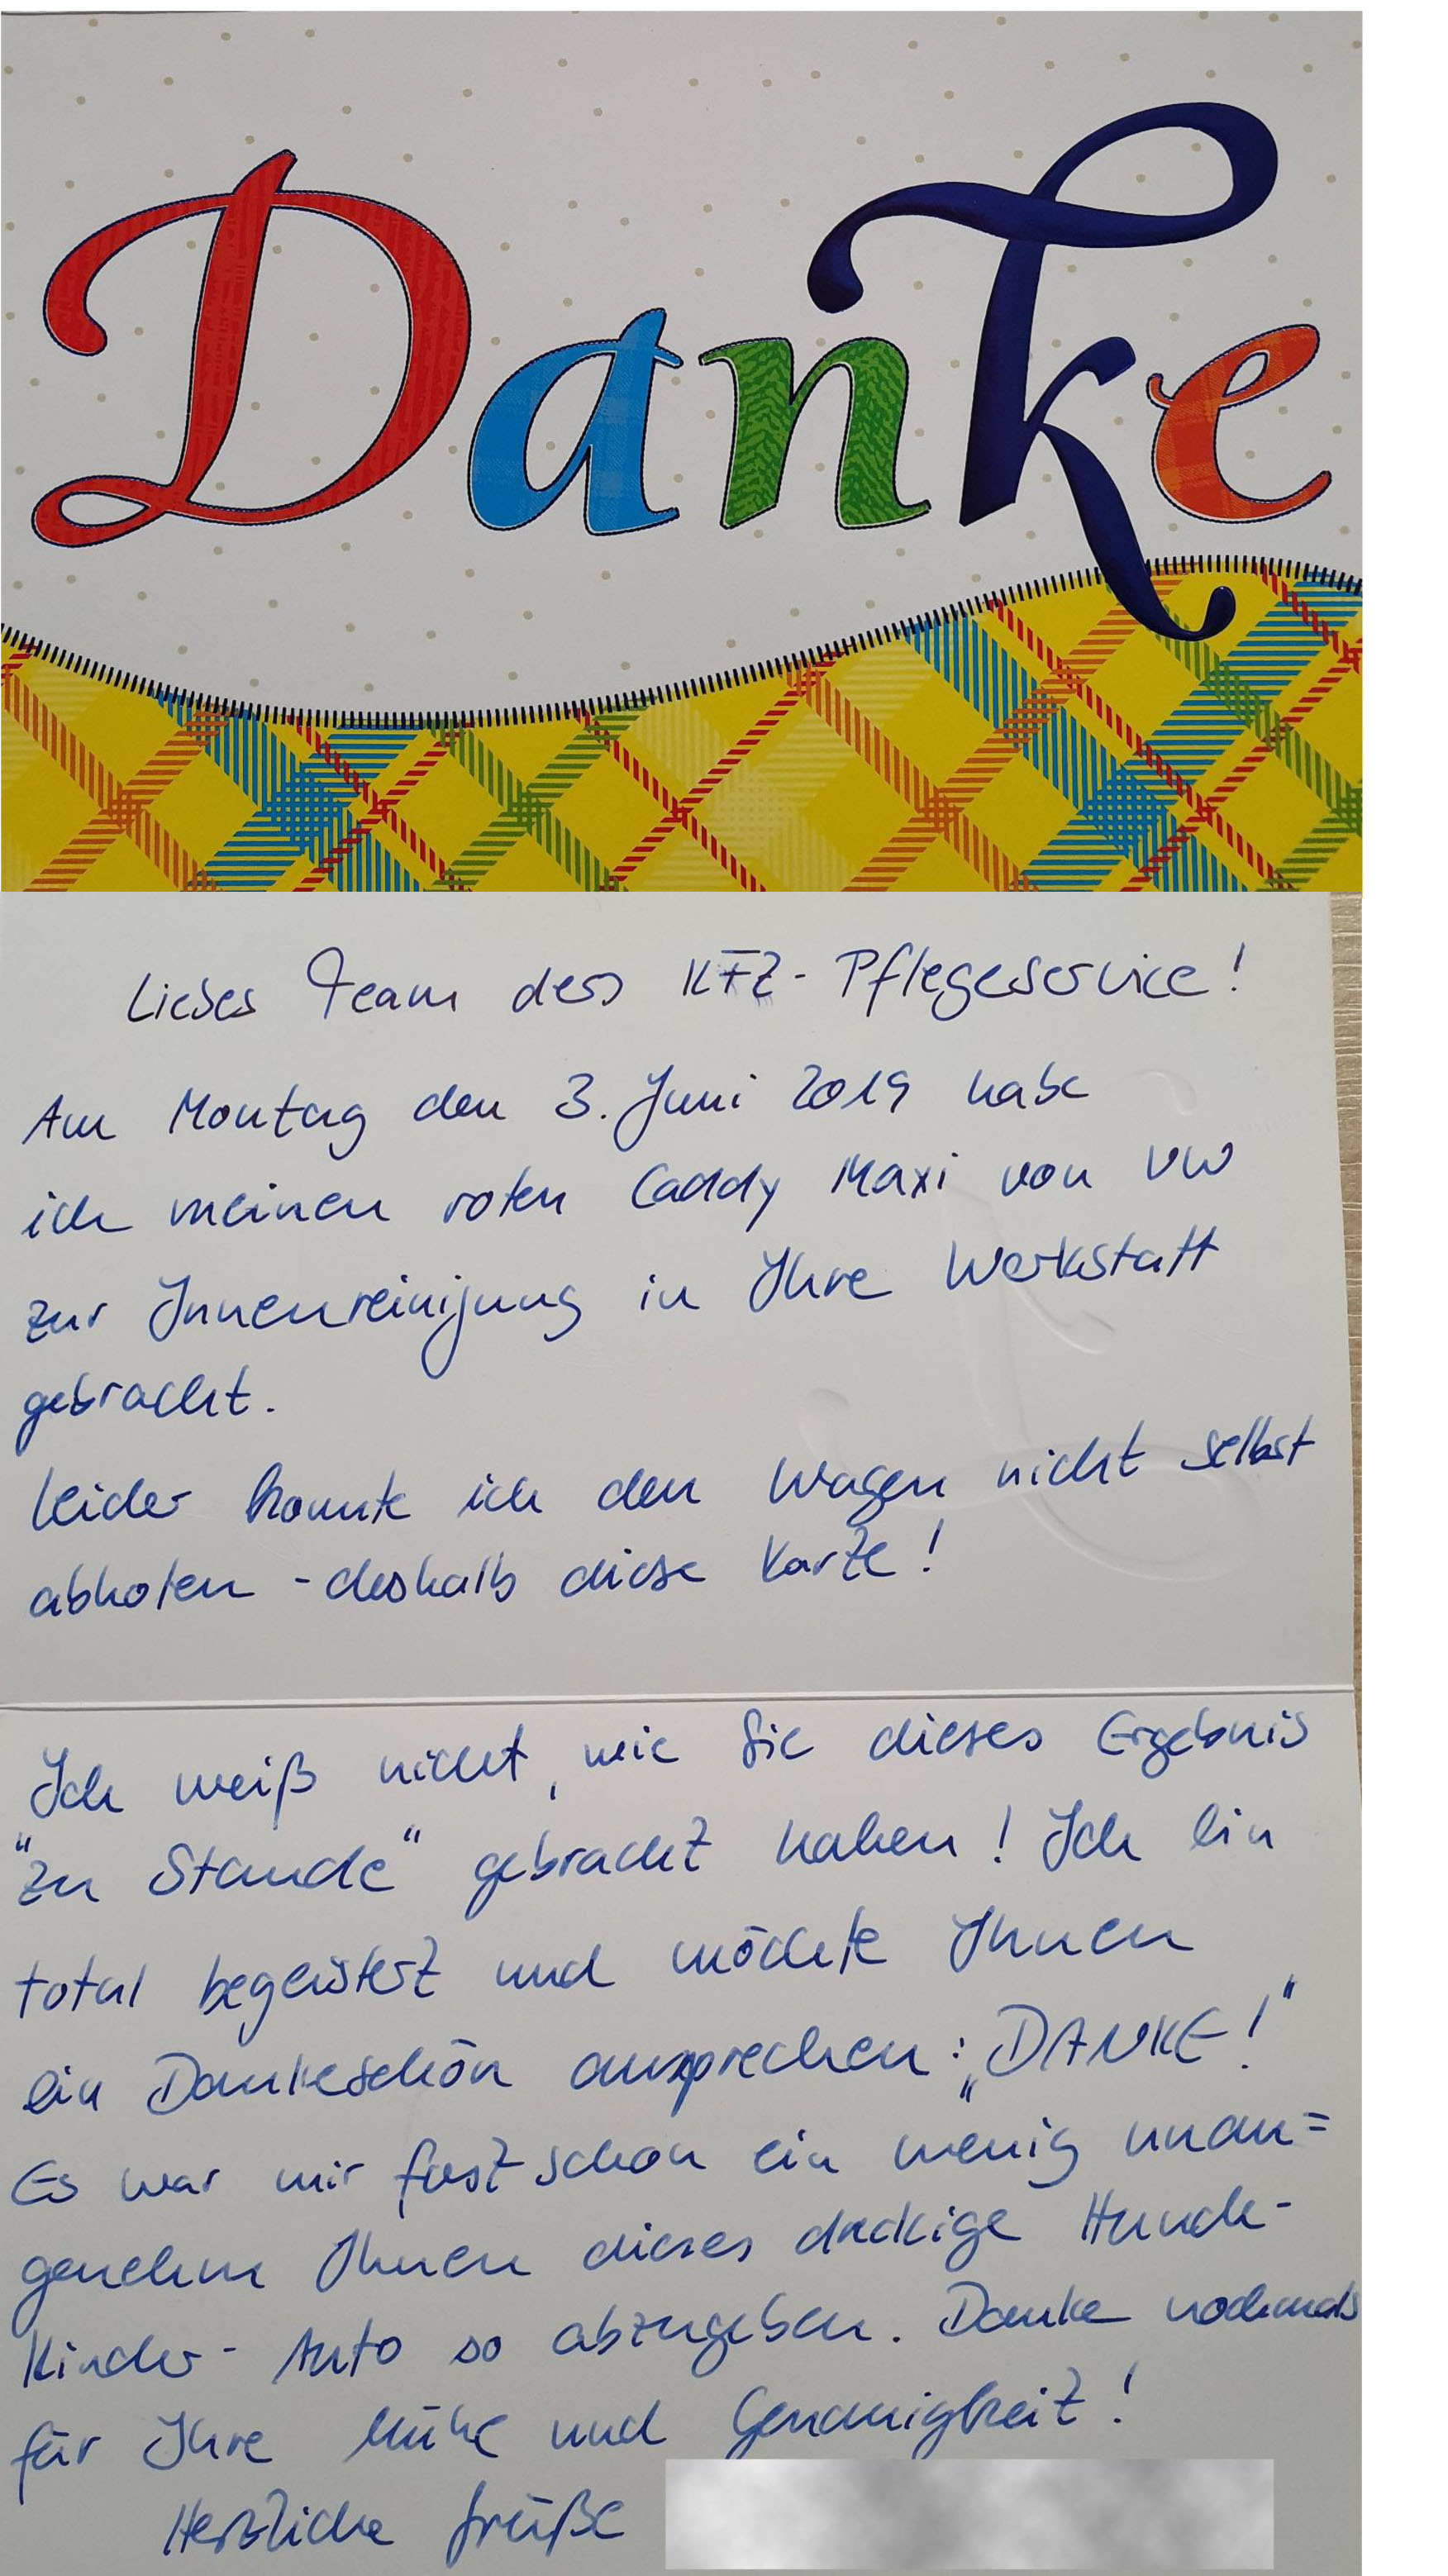 Danke
Liebes Team des KFZ-Pflegeservice!
Am Montag den 3. Juni 2019 habe
ich meinen roten Caddy Maxi von VW
zur Innenreinigung in Ihre Werkstatt
gebracht.
Leider konnte ich den Wagen nicht selbst
abholen - deshalb diese Karte!
Ich weiß nicht, wie Sie dieses Ergebnis
"zu Stande" gebracht haben! Ich bin
total begeistert und möchte Ihnen
ein Dankeschön aussprechen: „DANKE!"
Es war mir fast schon ein wenig unan=
genehm Ihnen dieses dreckige Hunde-
Kinder-Auto so abzugeben. Danke nochmals
für Ihre Mühe und Genauigkeit!
Herzliche Grüße